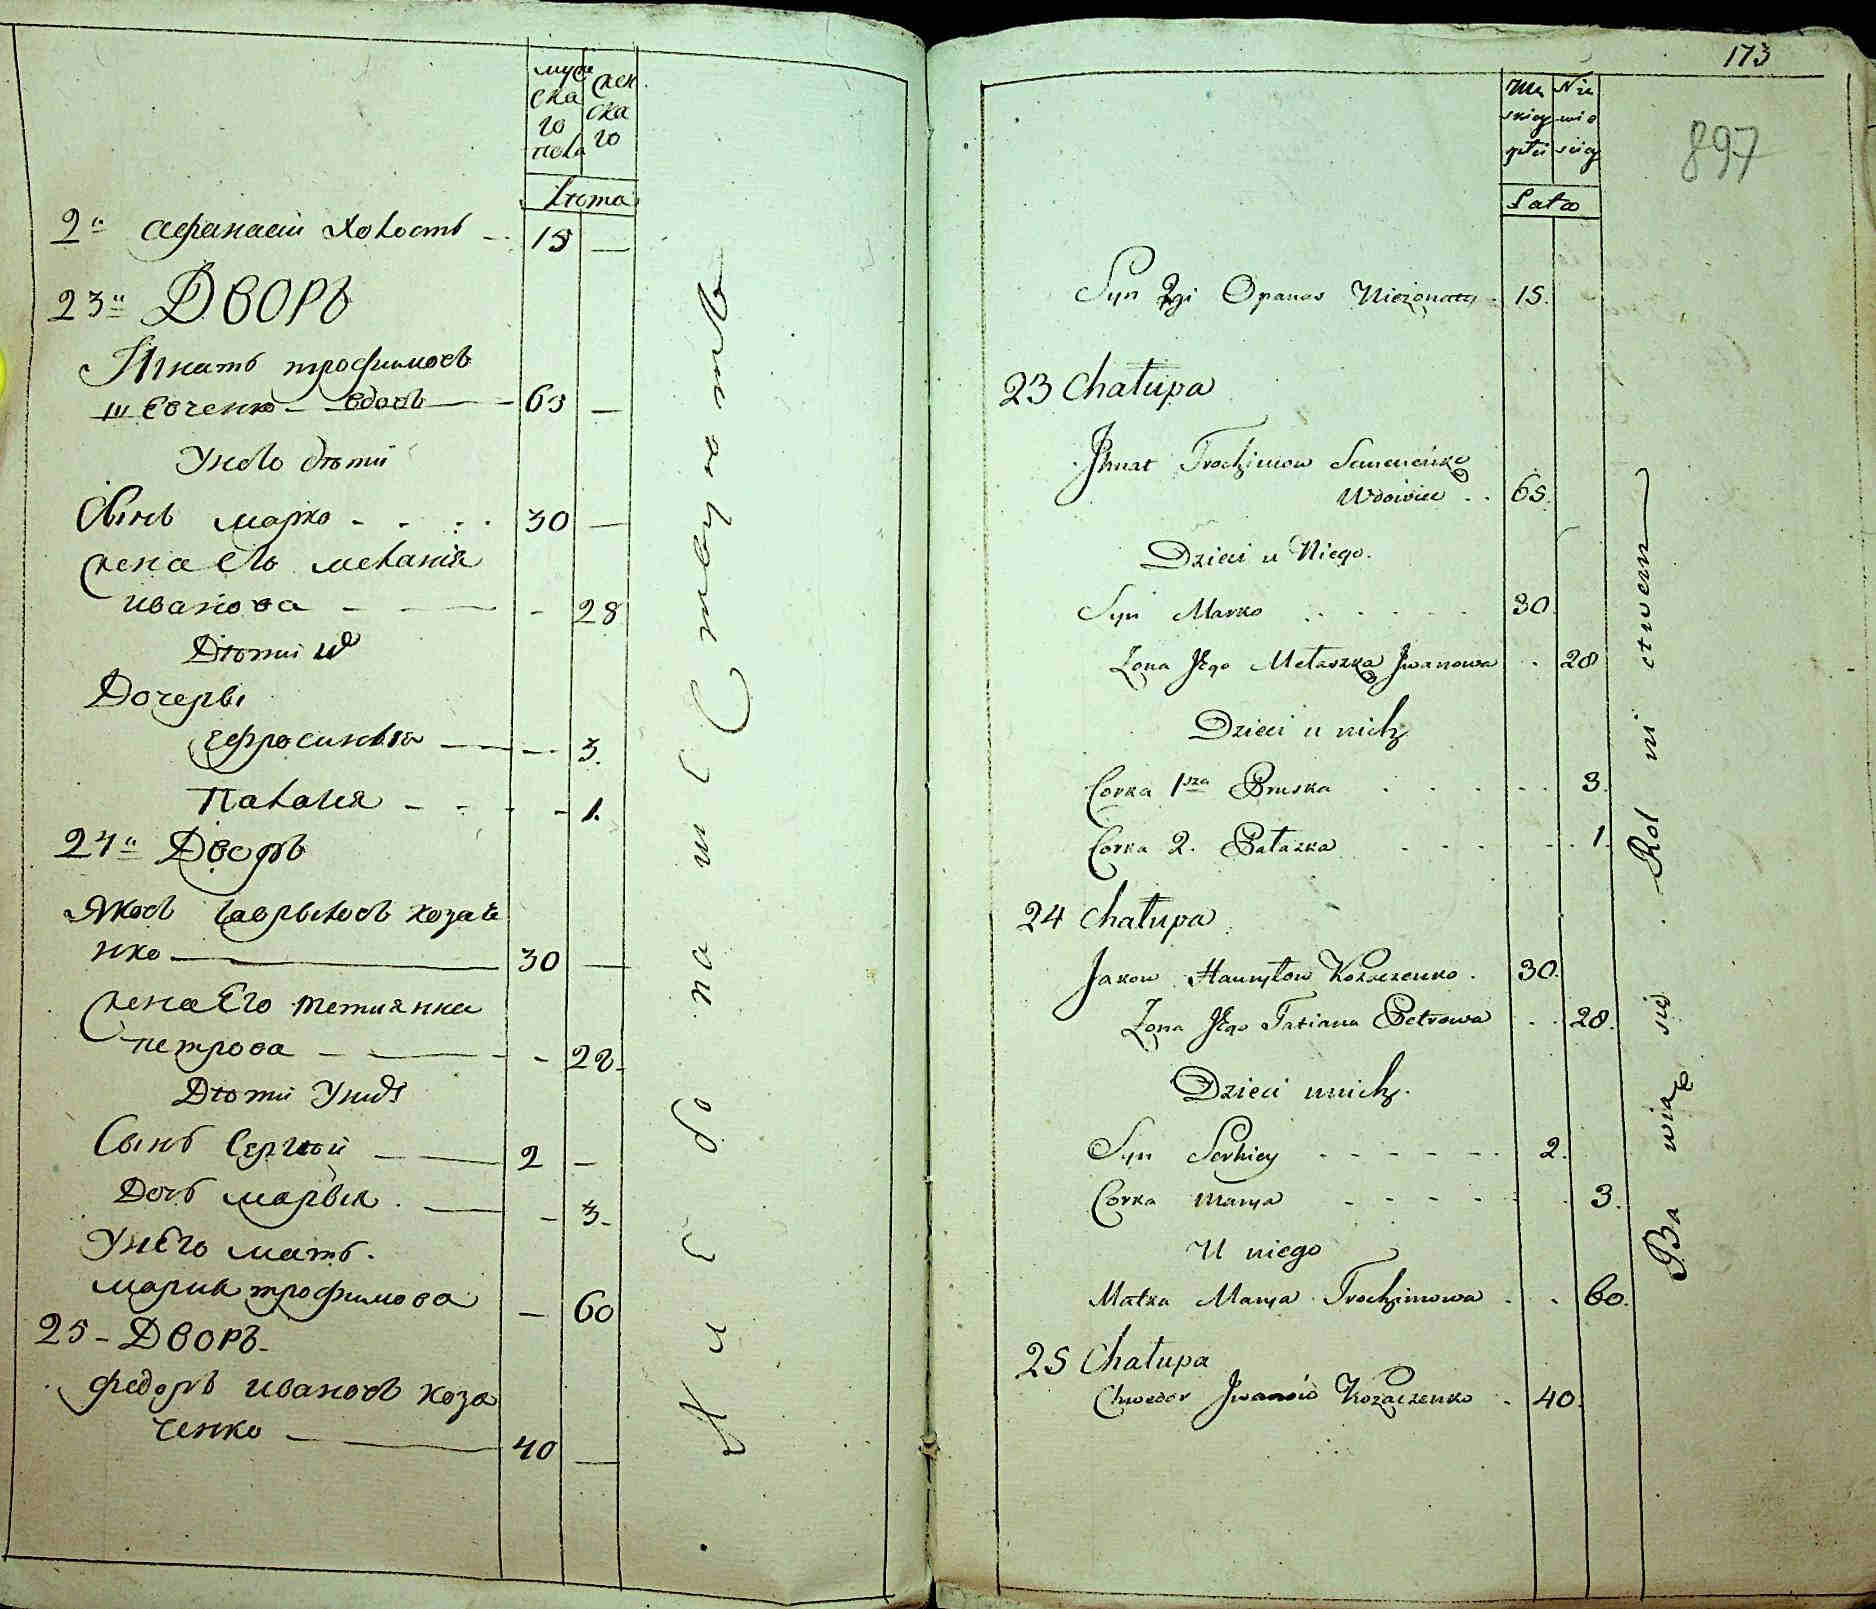 муже
ска
го
пола
жен
ска
го
Лѣта
2й Афанасий Холостъ - 15 —
23й Дворъ
Игнатъ трофимовъ
Шевченко — вдовъ — 65 —
У него дѣти
Сынъ марко - - - - 30 —
жена Его мелания
иванова — — - 28
Дѣти их
Дочеры
ефросинья — - 3.
Палагия - - - - 1.
24й Дворъ
Яковъ гаврыловъ козаче
нко — 30 —
жена Его тетиянна
петрова — — - 28.
Дѣти У них
Сынъ Сергѣй — 2 —
Дочь марья. — - 3-
У него мать.
мария трофимова — 60
25 - Дворъ.
федоръ ивановъ коза
ченко — 40 —
Хлебопашествуютъ
173
897
Mę
skiey
płci
Nie
wie
sciey
Lata
Syn 2gi Opanas Nieżonaty - 15.
23 Chałupa
Jhnat Trochimow
Wdowiec . . 65.
Dzieci u Niego.
Syn Marko . . . . . 30.
Żona Jego Melaszka Jwanowa . 28
Dzieci u nich
Corka 1sza Pruska . . . . . 3.
Corka 2. Palazka . . . . . 1.
24 Chałupa
Jakow Hawryłow Kozaczenko . 30.
Żona Jego Tatiana Petrowa . . 28.
Dzieci unich.
Syn Serhiey - - - - - - 2.
Corka Marya - - - - - . 3.
U niego
Matka Marya Trochimowa . . 60.
25 Chałupa
Chwedor Jwanów Kozaczenko . 40.
Ba wią się . Rol ni ctwem